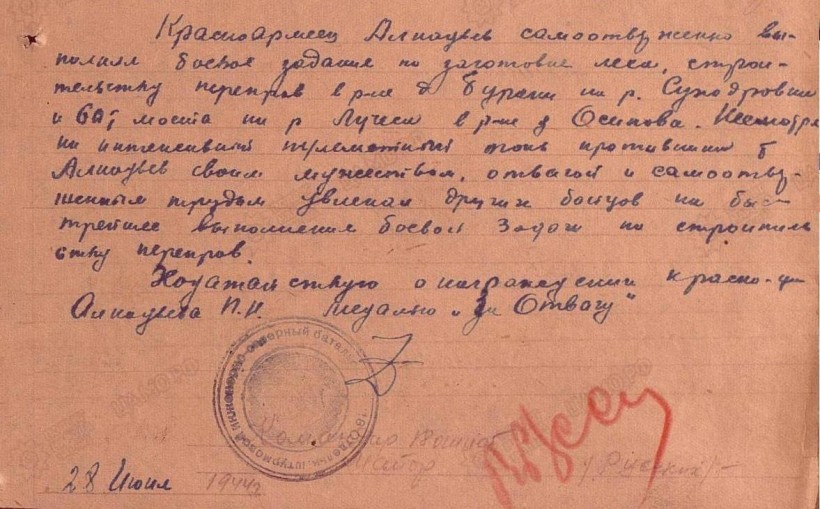 Красноармеец Алнадьев самоотверженно вы-
полнял боевое задание по заготовке леса, строи-
тельству переправ в р-не д Бураки на р. Суходровка
и 60т моста на р Лучеса в р-не д Осипова. Несмотря
на интенсивный пулеметный огонь противника т
Алнадьев своим мужеством, отвагой и самоотвер-
женным трудом увлекал других бойцов на быс
трейшее выполнение боевой задачи по строитель
ству переправ.
Ходатайствую о награждении красно-ца
П.Н. медалью „За Отвагу"
Командир
Майор /Русских/
28 Июня 1944г